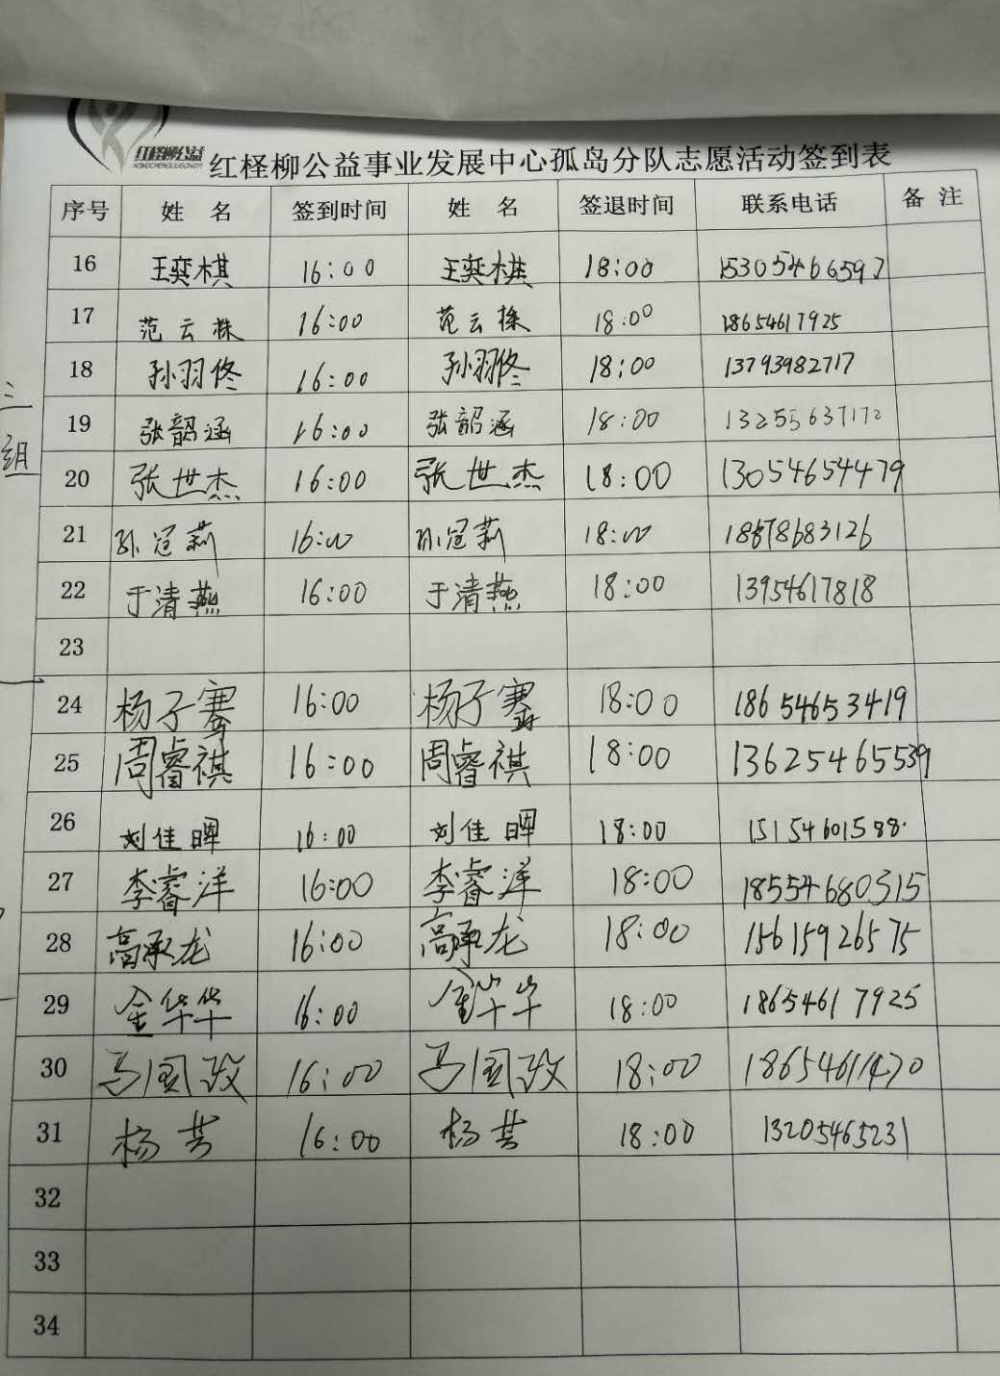 红柽柳公益
红柽柳公益事业发展中心孤岛分队志愿活动签到表
序号 姓 名 签到时间 姓 名 签退时间 联系电话 备 注
16 王奕棋 16:00 王奕棋 18:00 15305466597
17 范云栋 16:00 范云栋 18:00 18654617925
18 孙羽佟 16:00 孙羽佟 18:00 13793982717
19 张韶涵 16:00 张韶涵 18:00 13255637172
20 张世杰 16:00 张世杰 18:00 13054654479
21 孙冠莉 16:00 孙冠莉 18:00 18678683126
22 于清燕 16:00 于清燕 18:00 13954617818
23
24 杨子骞 16:00 杨子骞 18:00 18654653419
25 周睿祺 16:00 周睿祺 18:00 13625465539
26 刘佳晖 16:00 刘佳晖 18:00 15154601588
27 李睿洋 16:00 李睿洋 18:00 18554680315
28 高承龙 16:00 高承龙 18:00 15615926575
29 金华华 16:00 金华华 18:00 18654617925
30 马国政 16:00 马国政 18:00 18654611470
31 杨芸 16:00 杨芸 18:00 13205465231
32
33
34
三组